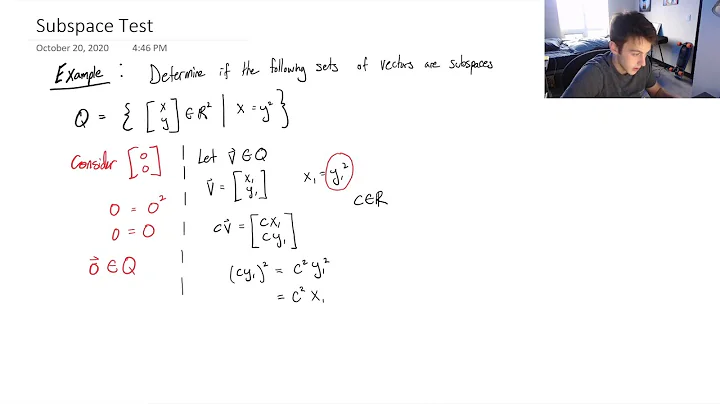 Subspace Test
October 20, 2020 4:46 PM
Example : Determine if the following sets of vectors are subspaces
Q = { [x y] ∈ ℝ² | x = y² }
Consider [0 0]
0 = 0²
0 = 0
0⃗ ∈ Q
Let v⃗ ∈ Q
v⃗ = [x₁ y₁] x₁ = y₁²
c ∈ ℝ
cv⃗ = [cx₁ cy₁]
(cy₁)² = c² y₁²
= c² x₁